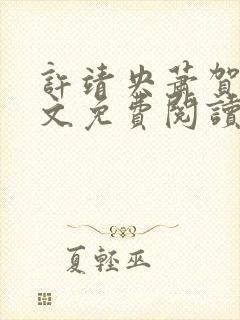 許靖央蕭賀
文免費閱讀
夏輕巫